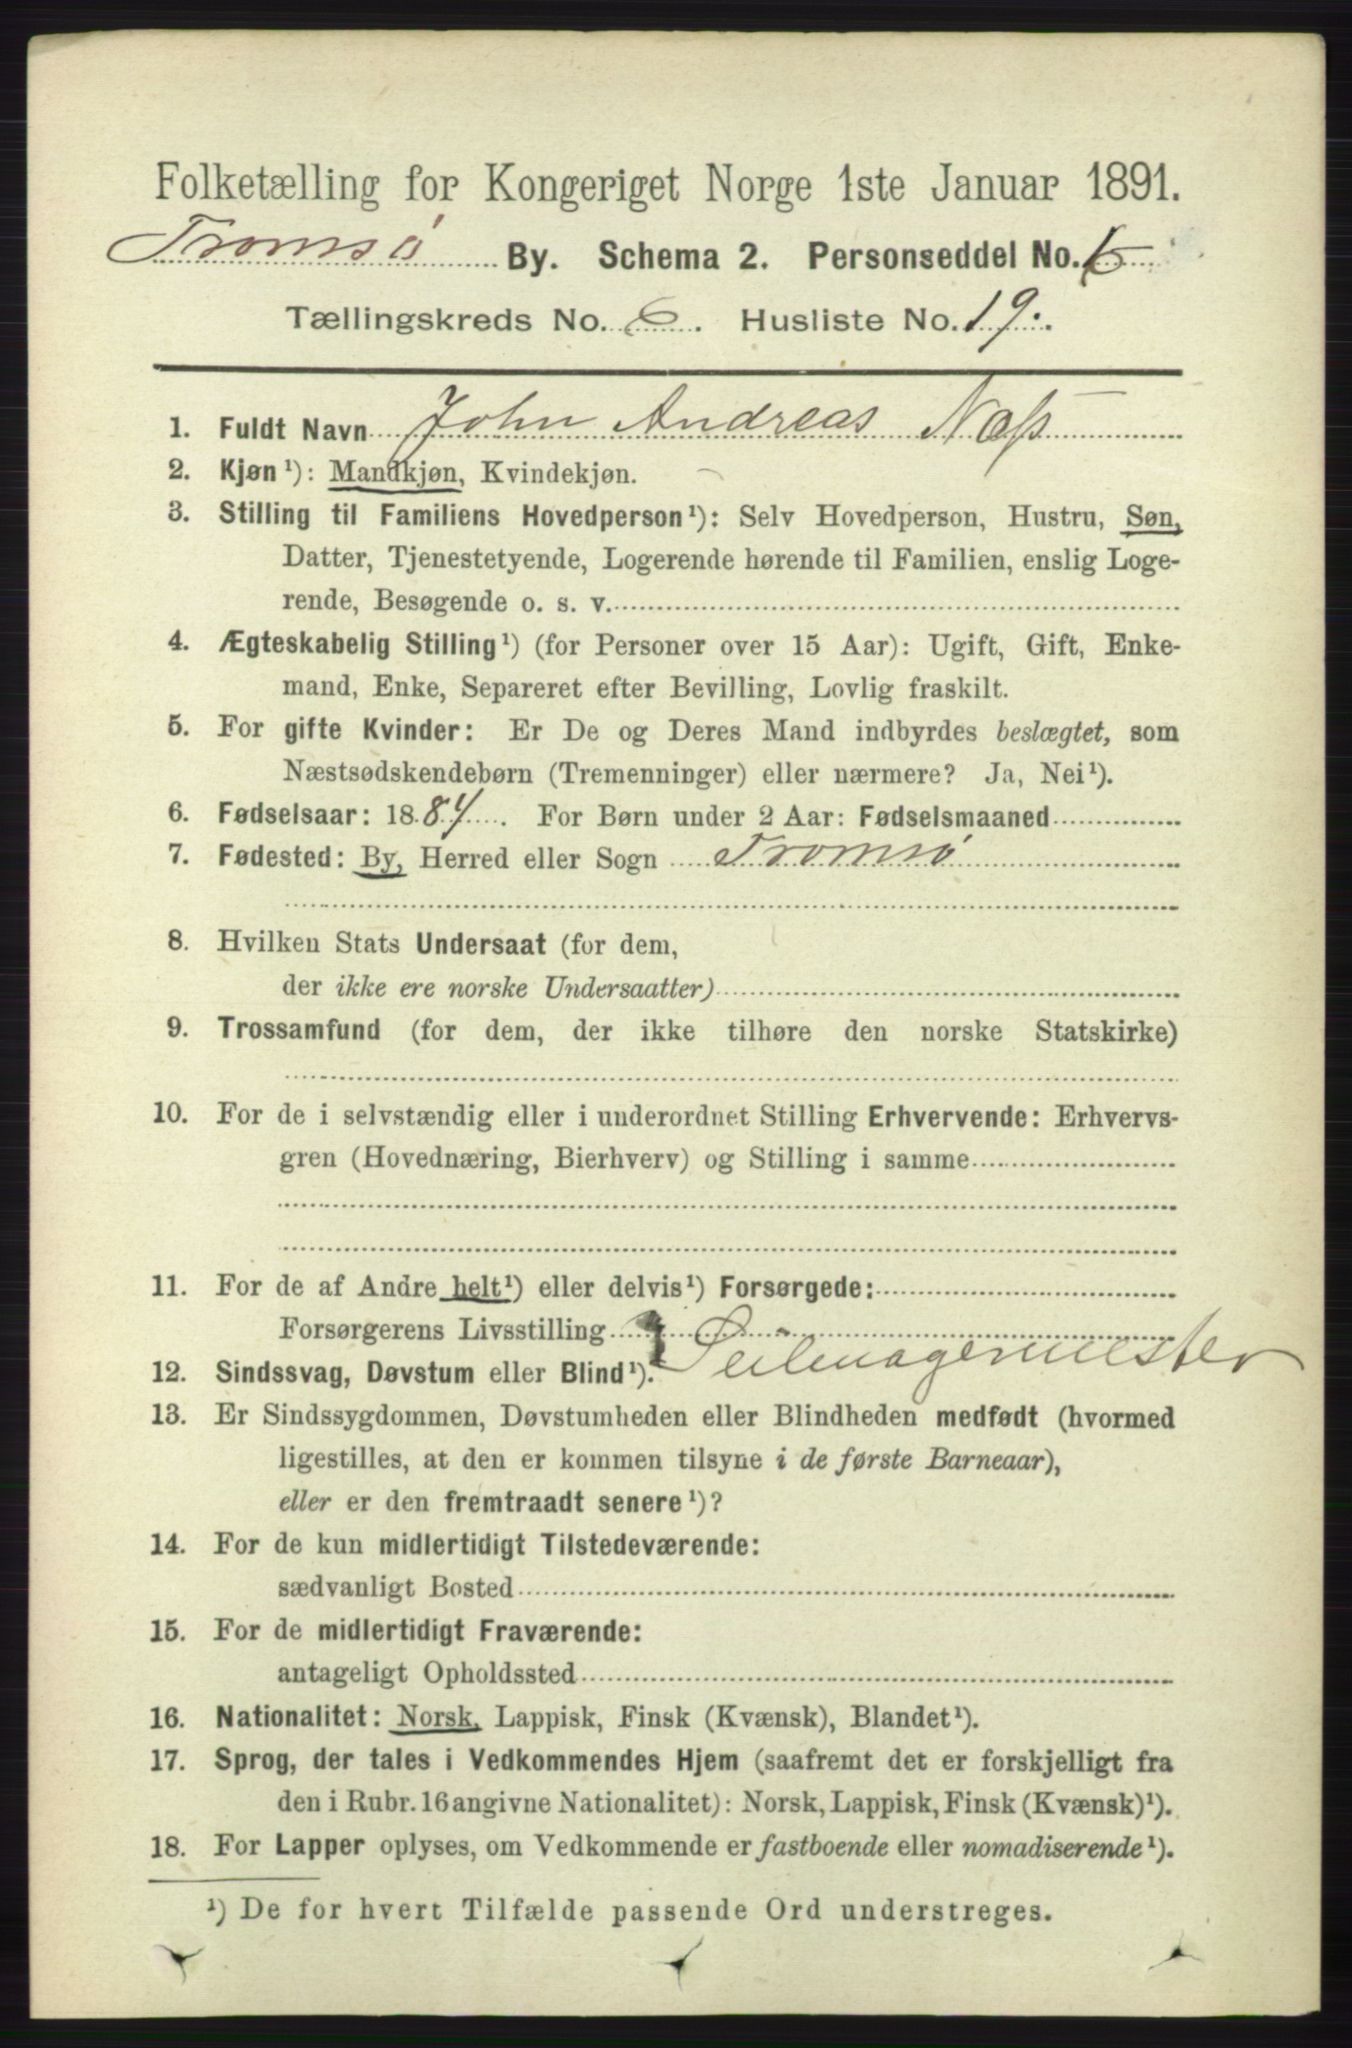 Folketælling for Kongeriget Norge 1ste Januar 1891.
Tromsø By. Schema 2. Personseddel No. 6
Tællingskreds No. 6. Husliste No. 19.
1. Fuldt Navn John Andreas Næss
2. Kjøn¹): Mandkjøn, Kvindekjøn.
3. Stilling til Familiens Hovedperson¹): Selv Hovedperson, Hustru, Søn,
Datter, Tjenestetyende, Logerende hørende til Familien, enslig Loge-
rende, Besøgende o. s. v.
4. Ægteskabelig Stilling¹) (for Personer over 15 Aar): Ugift, Gift, Enke-
mand, Enke, Separeret efter Bevilling, Lovlig fraskilt.
5. For gifte Kvinder: Er De og Deres Mand indbyrdes beslægtet, som
Næstsødskendebørn (Tremenninger) eller nærmere? Ja, Nei¹).
6. Fødselsaar: 1884. For Børn under 2 Aar: Fødselsmaaned
7. Fødested: By, Herred eller Sogn Tromsø
8. Hvilken Stats Undersaat (for dem,
der ikke ere norske Undersaatter)
9. Trossamfund (for dem, der ikke tilhøre den norske Statskirke)
10. For de i selvstændig eller i underordnet Stilling Erhvervende: Erhvervs-
gren (Hovednæring, Bierhverv) og Stilling i samme
11. For de af Andre helt¹) eller delvis¹) Forsørgede:
Forsørgerens Livsstilling Seilmagermester
12. Sindssvag, Døvstum eller Blind¹).
13. Er Sindssygdommen, Døvstumheden eller Blindheden medfødt (hvormed
ligestilles, at den er kommen tilsyne i de første Barneaar),
eller er den fremtraadt senere¹)?
14. For de kun midlertidigt Tilstedeværende:
sædvanligt Bosted
15. For de midlertidigt Fraværende:
antageligt Opholdssted
16. Nationalitet: Norsk, Lappisk, Finsk (Kvænsk), Blandet¹).
17. Sprog, der tales i Vedkommendes Hjem (saafremt det er forskjelligt fra
den i Rubr. 16 angivne Nationalitet): Norsk, Lappisk, Finsk (Kvænsk)¹).
18. For Lapper oplyses, om Vedkommende er fastboende eller nomadiserende¹).
¹) De for hvert Tilfælde passende Ord understreges.